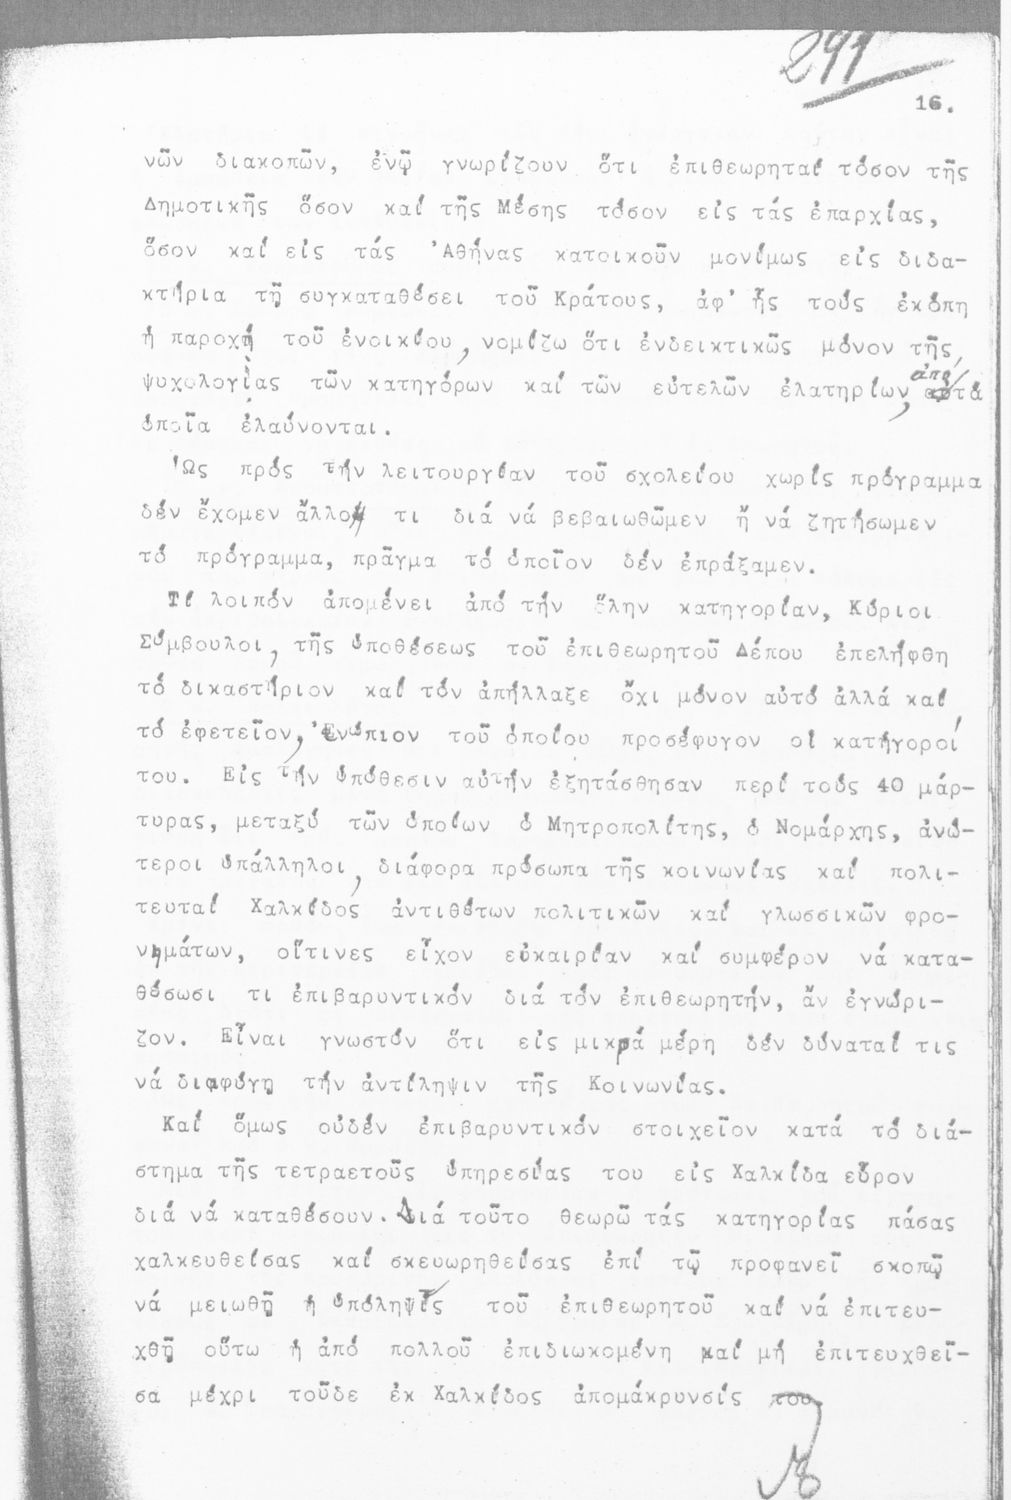 291
16.
νῶν διακοπῶν, ἐνῷ γνωρίζουν ὅτι ἐπιθεωρηταί τόσον τῆς
Δημοτικῆς ὅσον καί τῆς Μέσης τόσον εἰς τάς ἐπαρχίας,
ὅσον καί εἰς τάς Ἀθήνας κατοικοῦν μονίμως εἰς διδα-
κτήρια τῇ συγκαταθέσει τοῦ Κράτους, ἀφ' ἧς τούς ἐκόπη
ἡ παροχή τοῦ ἐνοικίου, νομίζω ὅτι ἐνδεικτικῶς μόνον τῆς
ψυχολογίας τῶν κατηγόρων καί τῶν εὐτελῶν ἐλατηρίων, ἀπό τά
ὁποῖα ἐλαύνονται.
Ὡς πρός τήν λειτουργίαν τοῦ σχολείου χωρίς πρόγραμμα
δέν ἔχομεν ἄλλο τι διά νά βεβαιωθῶμεν ἤ νά ζητήσωμεν
τό πρόγραμμα, πρᾶγμα τό ὁποῖον δέν ἐπράξαμεν.
Τί λοιπόν ἀπομένει ἀπό τήν ὅλην κατηγορίαν, Κύριοι
Σύμβουλοι, τῆς ὑποθέσεως τοῦ ἐπιθεωρητοῦ Δέπου ἐπελήφθη
τό δικαστήριον καί τόν ἀπήλλαξε ὄχι μόνον αὐτό ἀλλά καί
τό ἐφετεῖον, ἐνώπιον τοῦ ὁποίου προσέφυγον οἱ κατήγοροί
του. Εἰς τήν ὑπόθεσιν αὐτήν ἐξητάσθησαν περί τούς 40 μάρ-
τυρας, μεταξύ τῶν ὁποίων ὁ Μητροπολίτης, ὁ Νομάρχης, ἀνώ-
τεροι ὑπάλληλοι, διάφορα πρόσωπα τῆς κοινωνίας καί πολι-
τευταί Χαλκίδος ἀντιθέτων πολιτικῶν καί γλωσσικῶν φρο-
νημάτων, οἵτινες εἶχον εὐκαιρίαν καί συμφέρον νά κατα-
θέσωσι τι ἐπιβαρυντικόν διά τόν ἐπιθεωρητήν, ἄν ἐγνώρι-
ζον. Εἶναι γνωστόν ὅτι εἰς μικρά μέρη δέν δύναταί τις
νά διαφύγῃ τήν ἀντίληψιν τῆς Κοινωνίας.
Καί ὅμως οὐδέν ἐπιβαρυντικόν στοιχεῖον κατά τό διά-
στημα τῆς τετραετοῦς ὑπηρεσίας του εἰς Χαλκίδα εὗρον
διά νά καταθέσουν. Διά τοῦτο θεωρῶ τάς κατηγορίας πάσας
χαλκευθείσας καί σκευωρηθείσας ἐπί τῷ προφανεῖ σκοπῷ
νά μειωθῇ ἡ ὑπόληψίς τοῦ ἐπιθεωρητοῦ καί νά ἐπιτευ-
χθῇ οὕτω ἡ ἀπό πολλοῦ ἐπιδιωκομένη καί μή ἐπιτευχθεῖ-
σα μέχρι τοῦδε ἐκ Χαλκίδος ἀπομάκρυνσίς του.